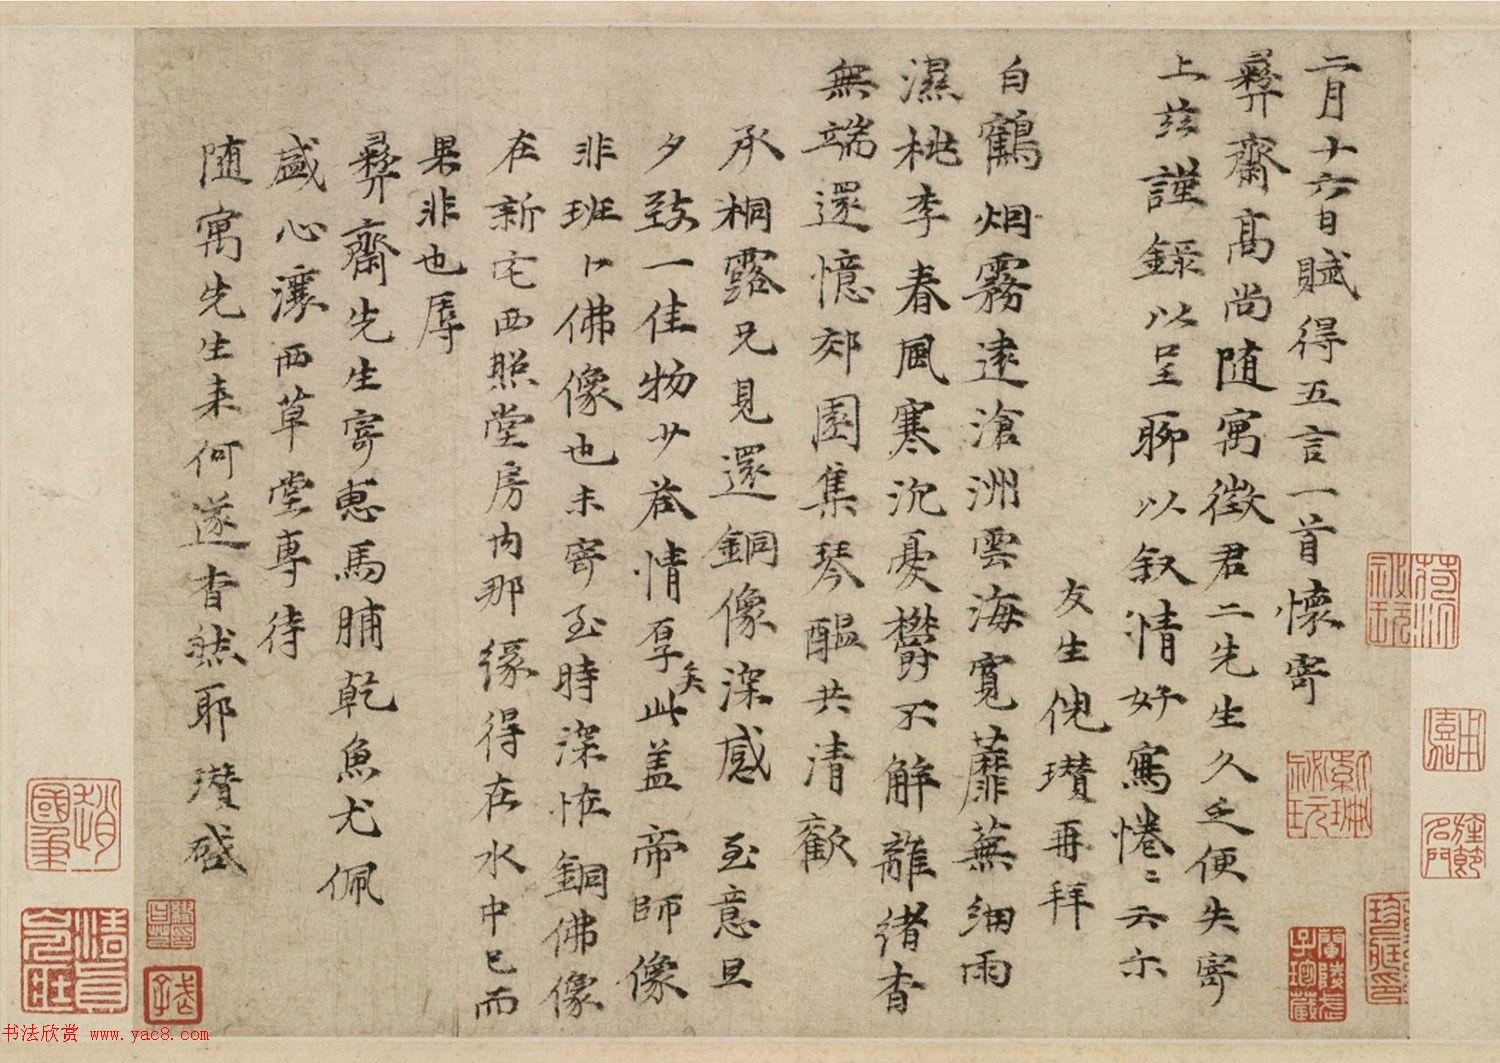 二月十六日賦得五言一首懷寄
彝齋高尚随寓徵君二先生久乏便失寄
上茲謹錄以呈聊以叙情好寫惓〻云尔
友生倪瓚再拜
白鶴烟霧遠滄洲雲海寬蘼蕪細雨
濕桃李春風寒沉憂欝不解離緒杳
無端還憶郊園集琴醖共清歡
承桐露兄見還銅像深感 至意旦
夕致一佳物少荅情厚矣此盖帝師像
非班卜佛像也未寄至時深怪銅佛像
在新宅西照堂房内那緣得在水中已而
果非也辱
彝齋先生寄惠馬脯乾魚尤佩
盛心瀼西草堂專待
随寓先生来何遂杳然耶瓚啟
趙
國
錢
書法欣赏 www.yac8.com